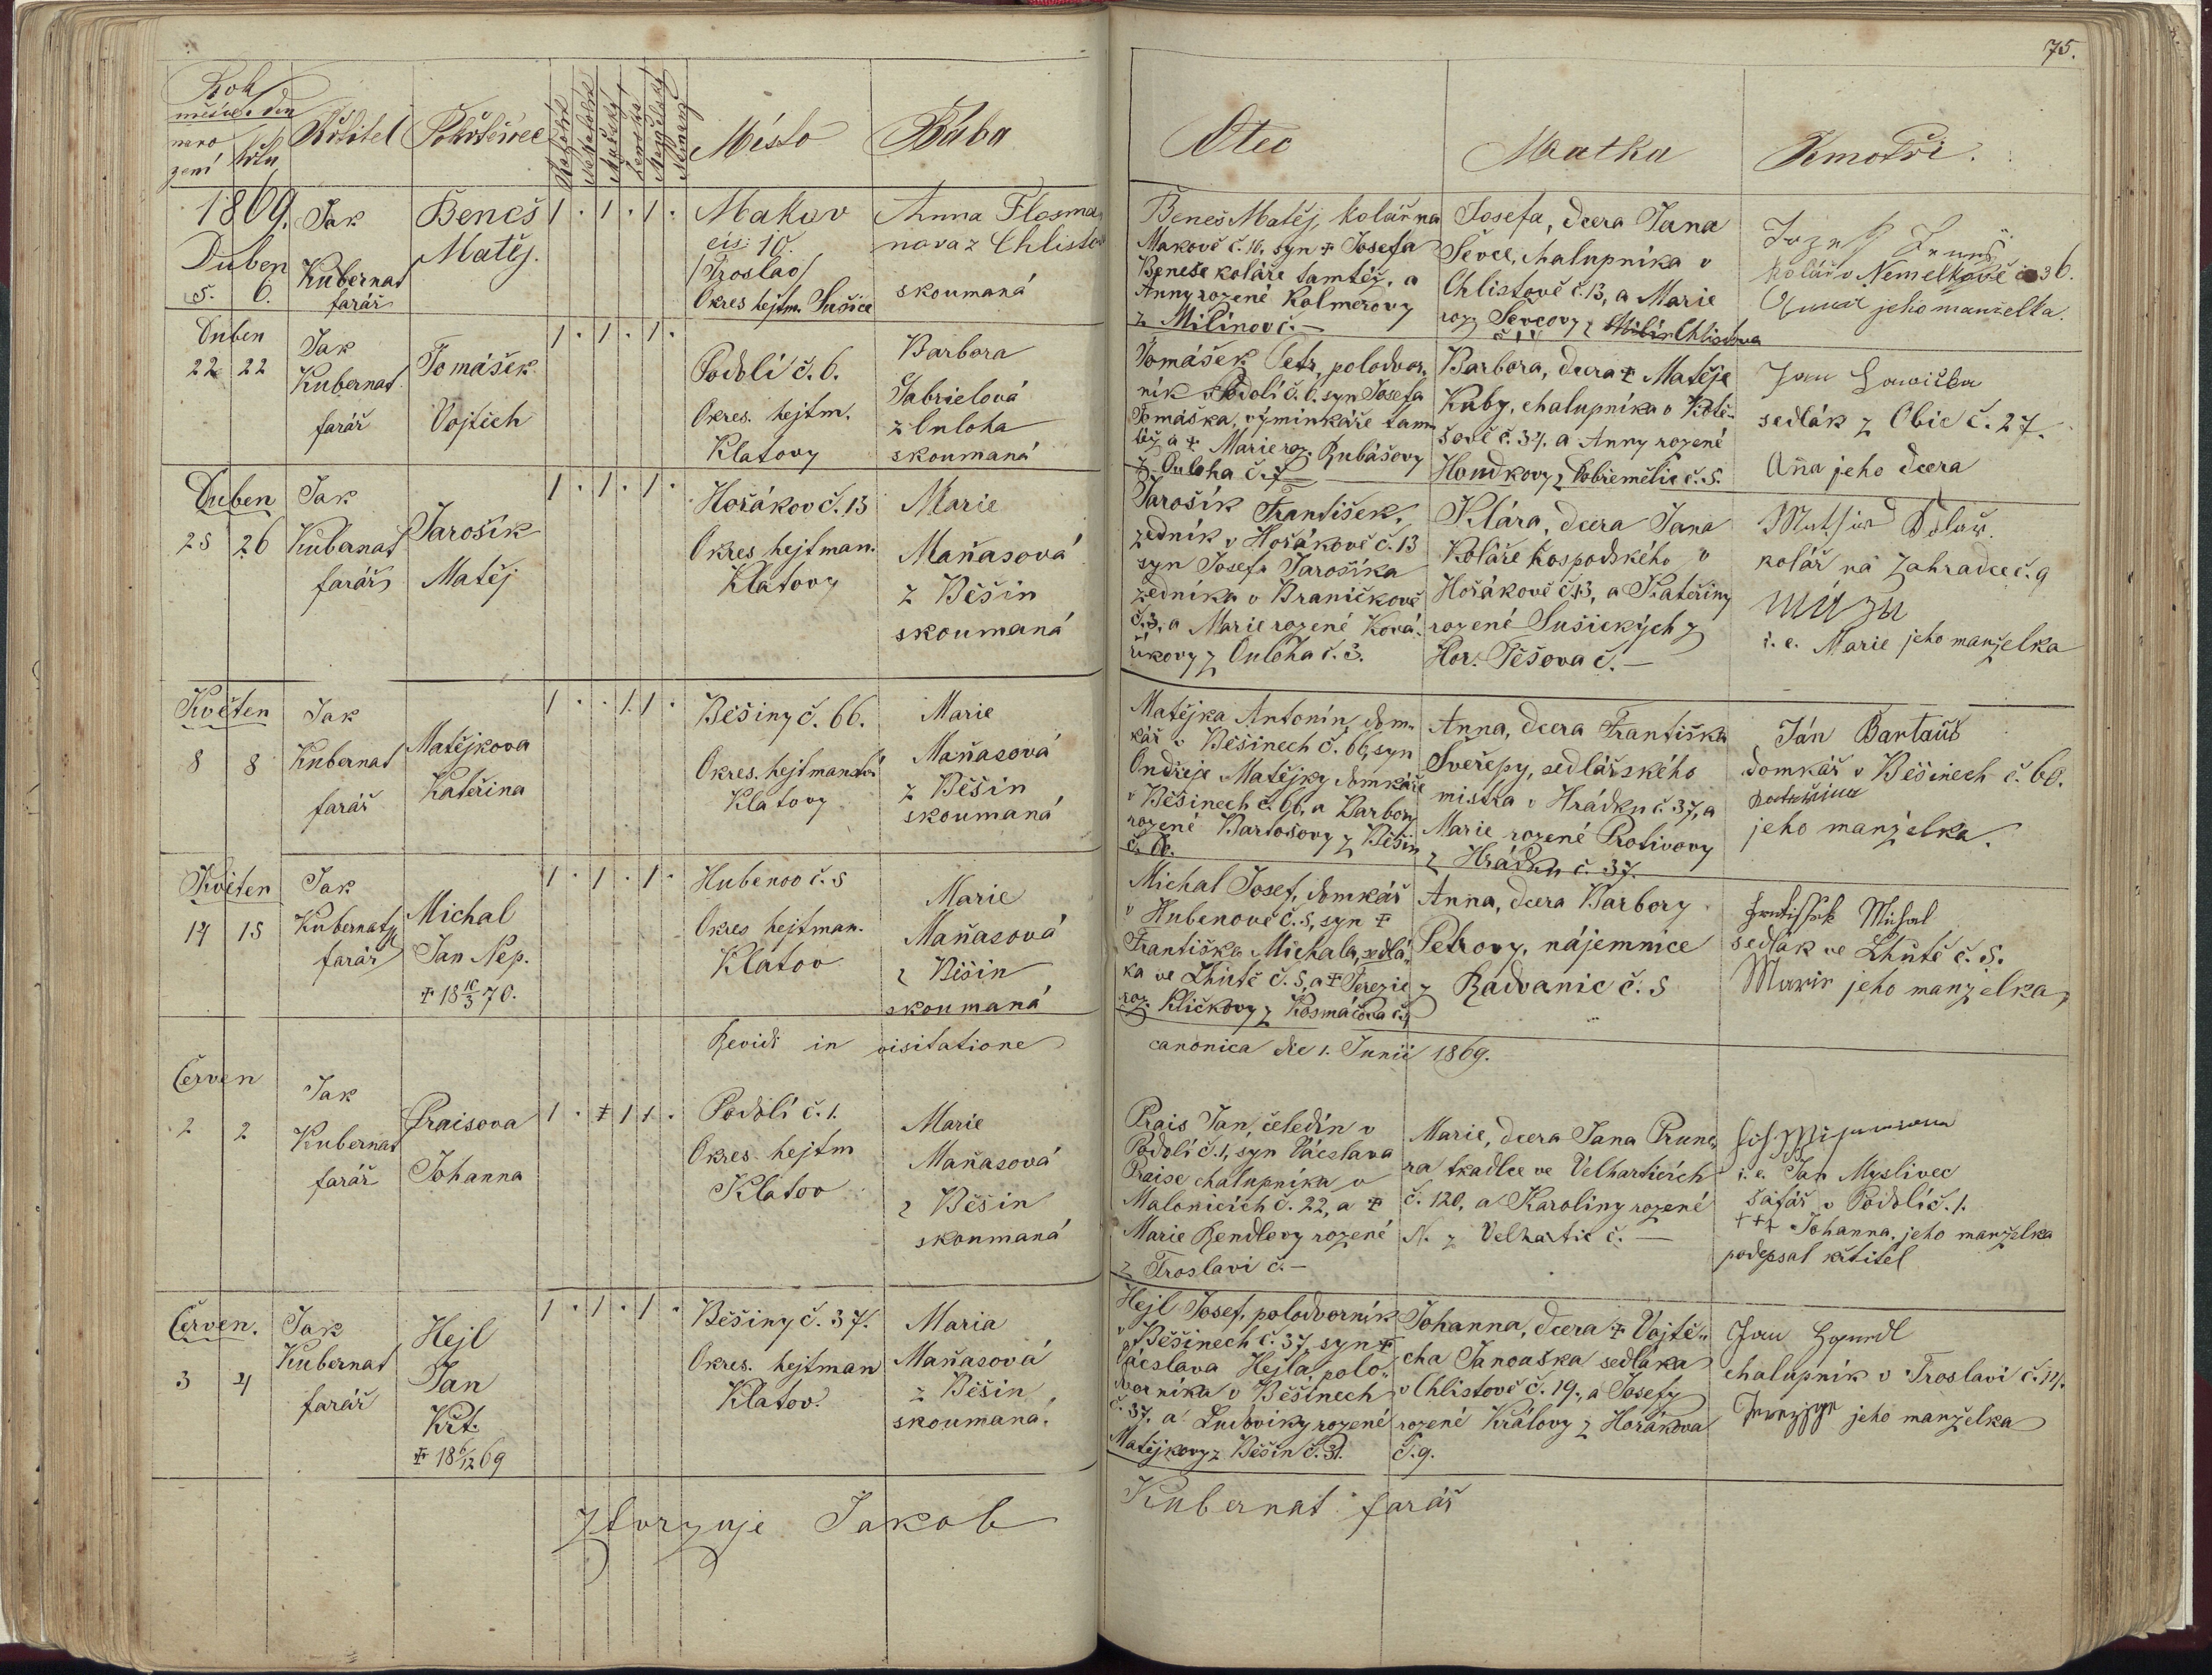 75.
Rok
měsíc, den
naro
zení
křtu
Křtitel
Pokřtěnec
Místo
Baba
Otec
Matka
Kmotři.
1869.
Duben
5. 6.
Jak
Kubernat
farář
Beneš
Matěj.
1 . 1 . 1 .
Makov
čis: 10.
/Troslav/
Okres hejtm. Sušice
Anna Flosma
nova z Chlistov
skoumaná
Beneš Matěj, kolář na
Makově č. 10, syn + Josefa
Beneše koláře tamtéž, a
Anny rozené Kolmerovy
z Milínov č. —
Josefa, dcera Jana
Ševce, chalupníka v
Chlistově č. 13, a Marie
roz. Ševcovy z Chlistova
kolář v Nemelkově č. 36.
jeho manželka.
Duben
22 22
Jak
Kubernat
farář
Tomášek
Vojtěch
1 . 1 . 1 .
Podolí č. 6.
Okres. hejtm.
Klatovy
Barbora
Gabrielová
z Ouloha
skoumaná
Tomášek Petr, polodvor-
ník v Podolí č. 6. syn Josefa
Tomáška, výminkáře tam
též a + Marie roz. Rubášovy
z Ouloha č. 7
Barbora, dcera + Matěje
Kuby, chalupníka v
č. 37. a Anny rozené
Houdkovy z Dobřemělic č. 5.
Jan
sedlák z Obic č. 27.
Aña jeho dcera
Duben
25 26
Jak
Kubernat
farář
Jarošík
Matěj
1 . 1 . 1 .
Hořákov č. 13
Okres hejtman.
Klatovy
Marie
Maňasová
z Běšin
skoumaná
Jarošík František,
zedník v Hořákově č. 13
syn Josefa Jarošíka
zedníka v Braničkově
č. 3, a Marie rozené Ková-
říkovy z Ouloha č. 3.
Klára, dcera Jana
Koláře hospodského v
Hořákově č. 13, a Kateřiny
rozené Sušických z
Hor. Těšova č. —
kolář na Zahradce č. 9
i. e. Marie jeho manželka
Květen
8 8
Jak
Kubernat
farář
Matějkova
Kateřina
1 . . 1 1 .
Běšiny č. 66.
Okres. hejtmanství
Klatovy
Marie
Maňasová
z Běšin
skoumaná
Matějka Antonín, dom-
kář v Běšinech č. 66, syn
Ondřeje Matějky domkáře
v Běšinech č. 66, a Barbory
rozené Bartošovy z Běšin
č. 60.
Anna, dcera Františka
Sveřepy, sedlářského
mistra v Hrádku č. 37, a
Marie rozené Protivovy
z Hrádku č. 37.
Ján Bartoůš
domkář v Běšinech č. 60.
Kateřina
jeho manželka.
Květen
14 15
Jak
Kubernat
farář
Michal
Jan Nep.
+ 18 10/3 70.
1 . 1 . 1 .
Hubenov č. 5
Okres hejtman.
Klatov
Marie
Maňasová
z Běšin
skoumaná
Michal Josef, domkář
v Hubenově č. 5, syn +
Františka Michala, sedlá-
ka ve Lhůtě č. 5, a + Terezie
roz. Kličkovy z Kosmáčova č. 4
Anna, dcera Barbory
Petrovy, nájemnice
z Radvanic č. 5
Frantisfek Michal
sedlák ve Lhůtě č. 5.
Marie jeho manželka
Revidi in visitatione canonica die 1. Junii 1869.
Červen
2 2
Jak
Kubernat
farář
Praisova
Johanna
1 . + 1 1 .
Podolí č. 1.
Okres. hejtm
Klatov
Marie
Maňasová
z Běšin
skoumaná
Prais Jan, čeledín v
Podolí č. 1, syn Václava
Praise chalupníka v
Malonicích č. 22, a +
Marie Rendlovy rozené
z Troslavi č. —
Marie, dcera Jana Prune-
ra tkadlce ve Velharticích
č. 120, a Karoliny rozené
N. z Velhartic č. —
i. e. Jan Myslivec
šafář v Podolí č. 1.
+++ Johanna, jeho manželka
podepsal křtitel
Červen.
3 4
Jak
Kubernat
farář
Hejl
Jan
Křt.
+ 18 6/12 69
1 . 1 . 1 .
Běšiny č. 37.
Okres. hejtman
Klatov.
Maria
Maňasová
z Běšin
skoumaná.
Hejl Josef, polodvorník
v Běšinech č. 37, syn +
Václava Hejla, polo-
dvorníka v Běšinech
č. 37. a Ludoviky rozené
Matějkovy z Běšin č. 31.
Johanna, dcera + Vojtě-
cha Janouška sedláka
v Chlistově č. 19., a Josefy
rozené Královy z Hořákova
č. 9.
Jan
chalupník v Troslavi č. 14.
jeho manželka
Ztvrzuje Jakob Kubernat farář